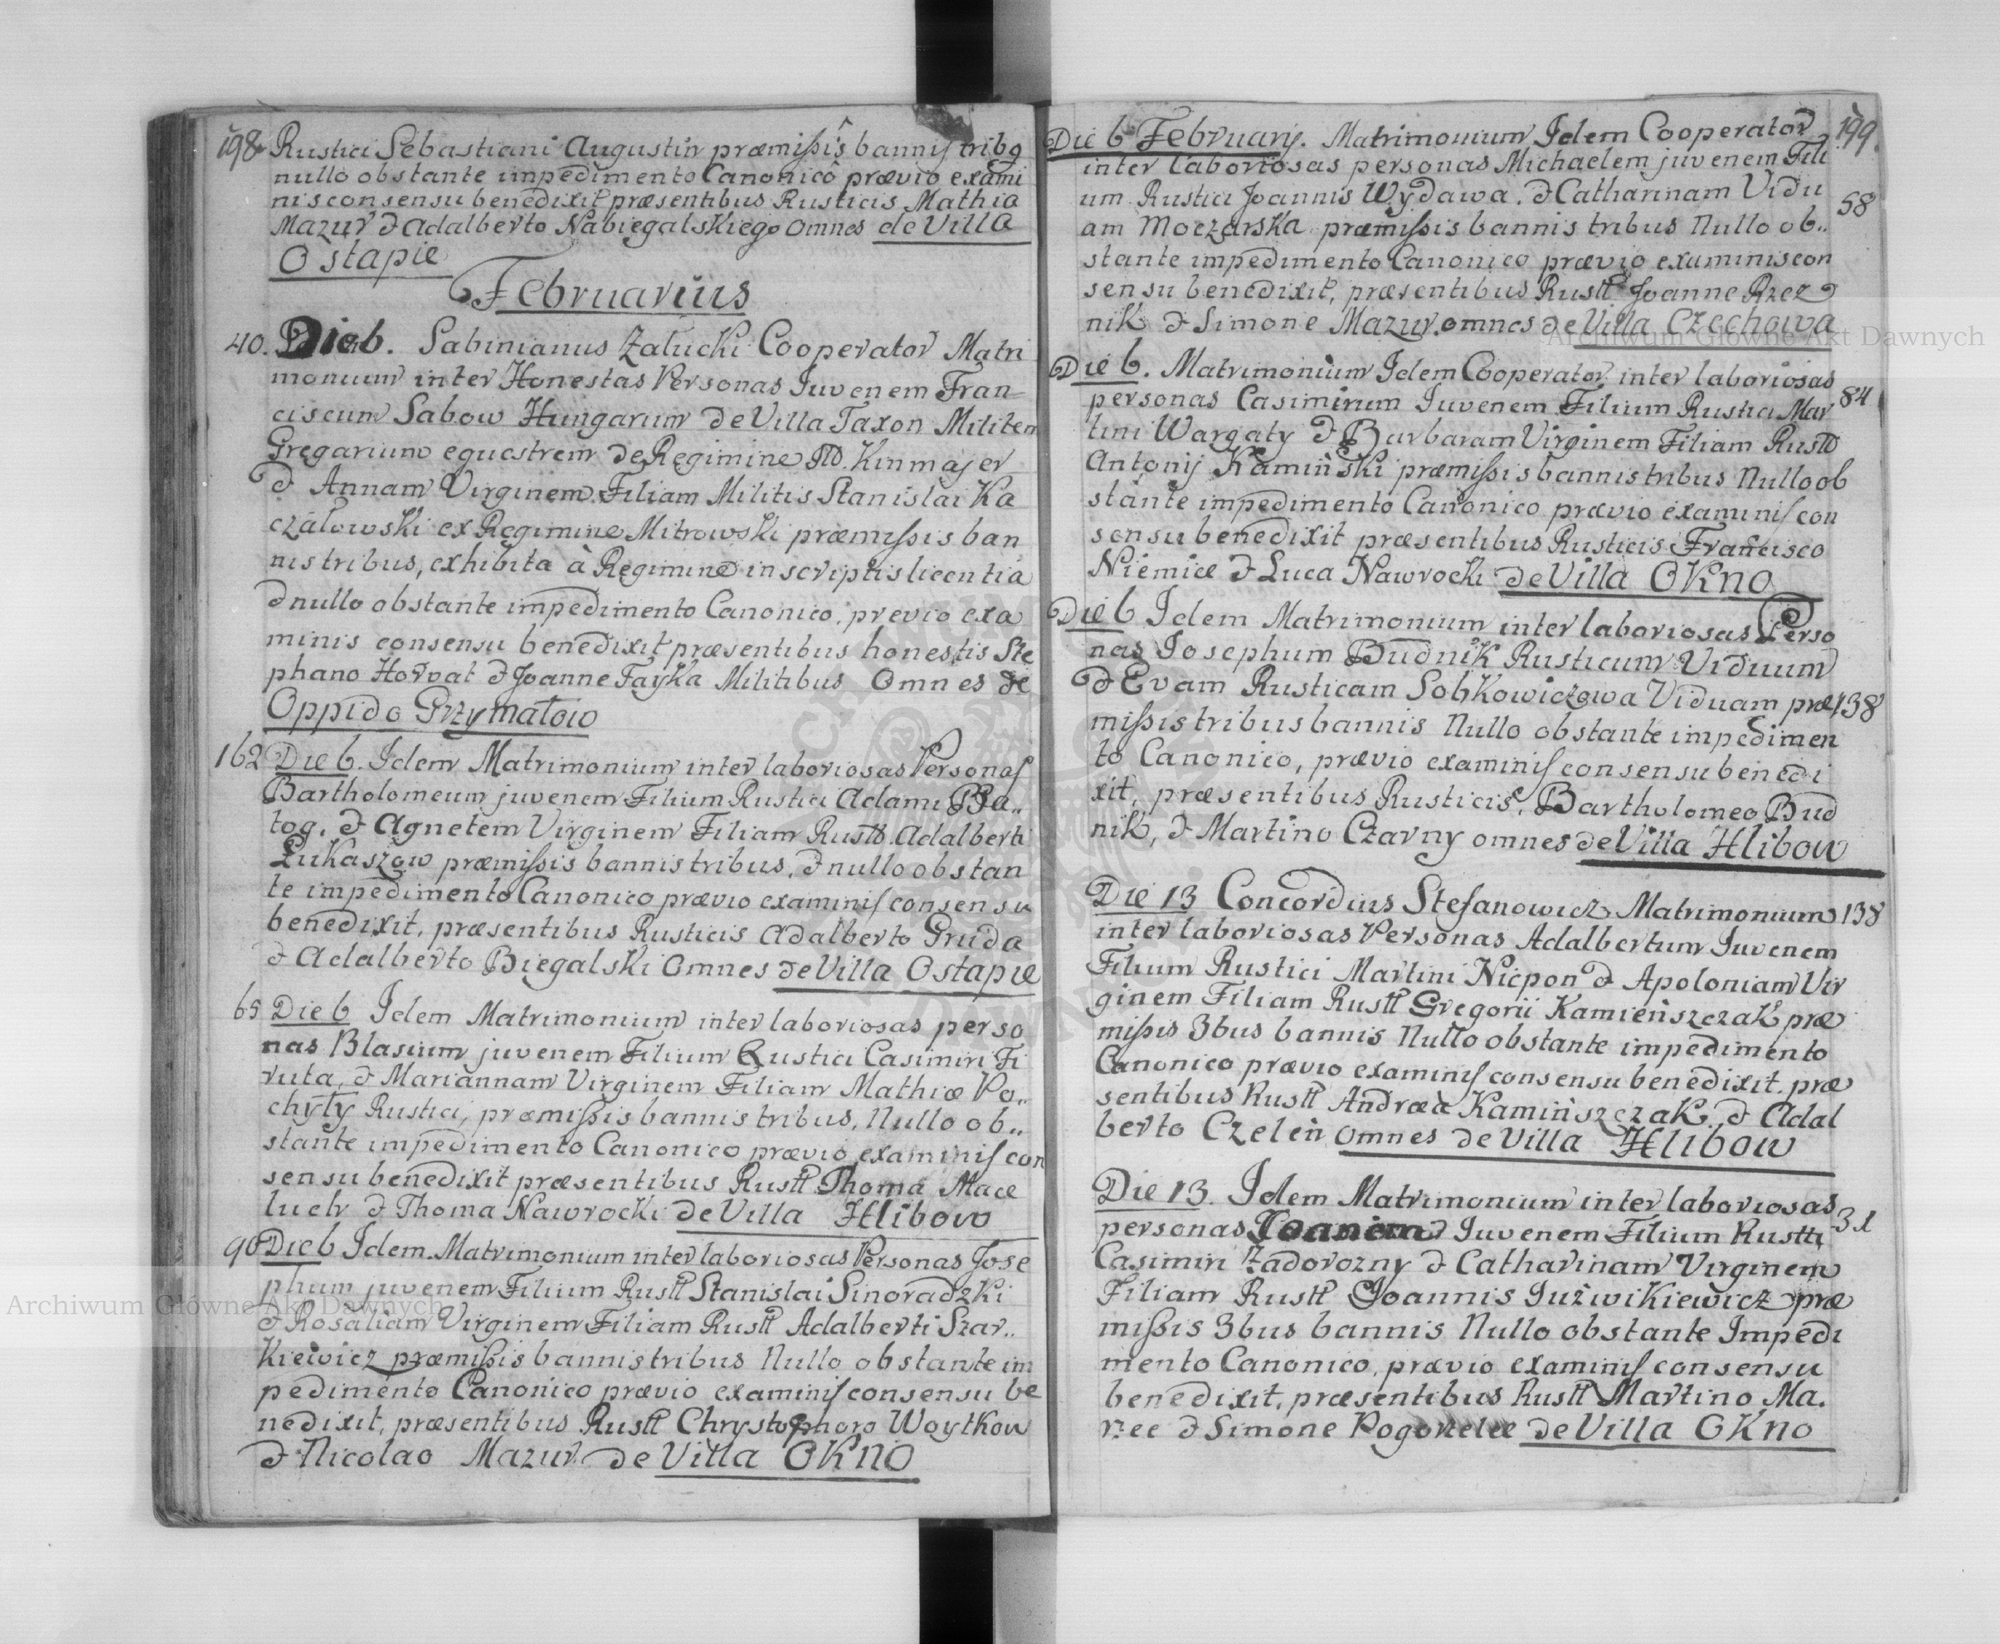 198
Rustici Sebastiani Augustin præmissis bannis tribg
nullo obstante impedimento Canonico prævio exami
nis consensu benedixit præsentibus Rusticis Mathia
Mazur & Adalberto Nabiegalskiego omnes de Villa
Ostapie
Februarius
40. Die 6. Sabinianus Załucki Cooperator Matri
monium inter Honestas Personas Juvenem Fran-
ciscum Sabow Hungarum de Villa Taxon Militem
Gregarium equestrem de Regimine Kinmajer
& Annam Virginem Filiam Militis Stanislai Ka
czałowski ex Regimine Mitrowski præmissis ban
nis tribus, exhibita à Regimine in scriptis licentia
& nullo obstante impedimento Canonico, previo exa
minis consensu benedixit præsentibus honestis Ste
phano Horvat & Joanne Fayka Militibus Omnes de
Oppido Grzymałow
162 Die 6. Idem Matrimonium inter laboriosas Personas
Bartholomeum juvenem Filium Rustici Adami Ba..
tog. & Agnetem Virginem Filiam Rusti Adalberti
Łukaszow præmissis bannis tribus, & nullo obstan
te impedimento Canonico prævio examinis consensu
benedixit, præsentibus Rusticis Adalberto Gruda
& Adalberto Biegalski Omnes de Villa Ostapie
65 Die 6 Idem Matrimonium inter laboriosas perso
nas Blasium juvenem Filium Rustici Casimiri Fi
ruta, & Mariannam Virginem Filiam Mathiæ Pa..
chyły Rustici, præmissis bannis tribus, Nullo ob..
stante impedimento Canonico prævio examinis con
sensu benedixit præsentibus Rustt Thoma Mace
luch & Thoma Nawrocki de Villa Hlibow
90 Die 6 Idem Matrimonium inter laboriosas Personas Jose
phum juvenem Filium Rustt Stanislai Sinoradzki
& Rosaliam Virginem Filiam Rustt Adalberti Szar..
kiewicz præmissis bannis tribus Nullo obstante im
pedimento Canonico prævio examinis consensu be
nedixit, præsentibus Rustt Chrystophoro Woytkow
& Nicolao Mazur de Villa OKNO
199.
Die 6 Februarij. Matrimonium Idem Cooperator
inter laboriosas personas Michaelem juvenem Fili
um Rustici Joannis Wydawa. & Catharinam Vidu 58
am Moczarska præmissis bannis tribus Nullo ob..
stante impedimento Canonico prævio examinis con
sensu benedixit, præsentibus Rustt Joanne Rzez
nik & Simone Mazur. omnes de Villa Czechowa
Die 6. Matrimonium Idem Cooperator inter laboriosas
personas Casimirum Juvenem Filium Rustici Mar 84
tini Wargaty & Barbaram Virginem Filiam Rusti
Antonij Kamiński præmissis bannis tribus Nullo ob
stante impedimento Canonico prævio examinis con
sensu benedixit præsentibus Rusticis Francisco
Niemiec & Luca Nawrocki de Villa OKNO
Die 6 Idem Matrimonium inter laboriosas Perso
nas Josephum Budnik Rusticum Viduum
& Evam Rusticam Sobkowiczowa Viduam præ 138
missis tribus bannis Nullo obstante impedimen
to Canonico, prævio examinis consensu benedi
xit, præsentibus Rusticis, Bartholomeo Bud
nik, & Martino Czarny omnes de Villa Hlibow
Die 13 Concordius Stefanowicz Matrimonium 138
inter laboriosas Personas Adalbertum Juvenem
Filium Rustici Martini Nicpon & Apoloniam Vir
ginem Filiam Rustt Gregorii Kamieńszczak præ
missis 3bus bannis Nullo obstante impedimento
Canonico prævio examinis consensu benedixit præ
sentibus Rustt Andræa Kamińszczak & Adal
berto Czeleń omnes de Villa Hlibow
Die 13. Idem Matrimonium inter laboriosas
personas Joanem Juvenem Filium Rustti 31
Casimiri Zadorozny & Catharinam Virginem
Filiam Rustt Joannis Juźwikiewicz præ
missis 3bus bannis Nullo obstante Impedi
mento Canonico, prævio examinis consensu
benedixit, præsentibus Rustt Martino Ma.
rzec & Simone de Villa OKNO
Archiwum Główne Akt Dawnych
Archiwum Główne Akt Dawnych